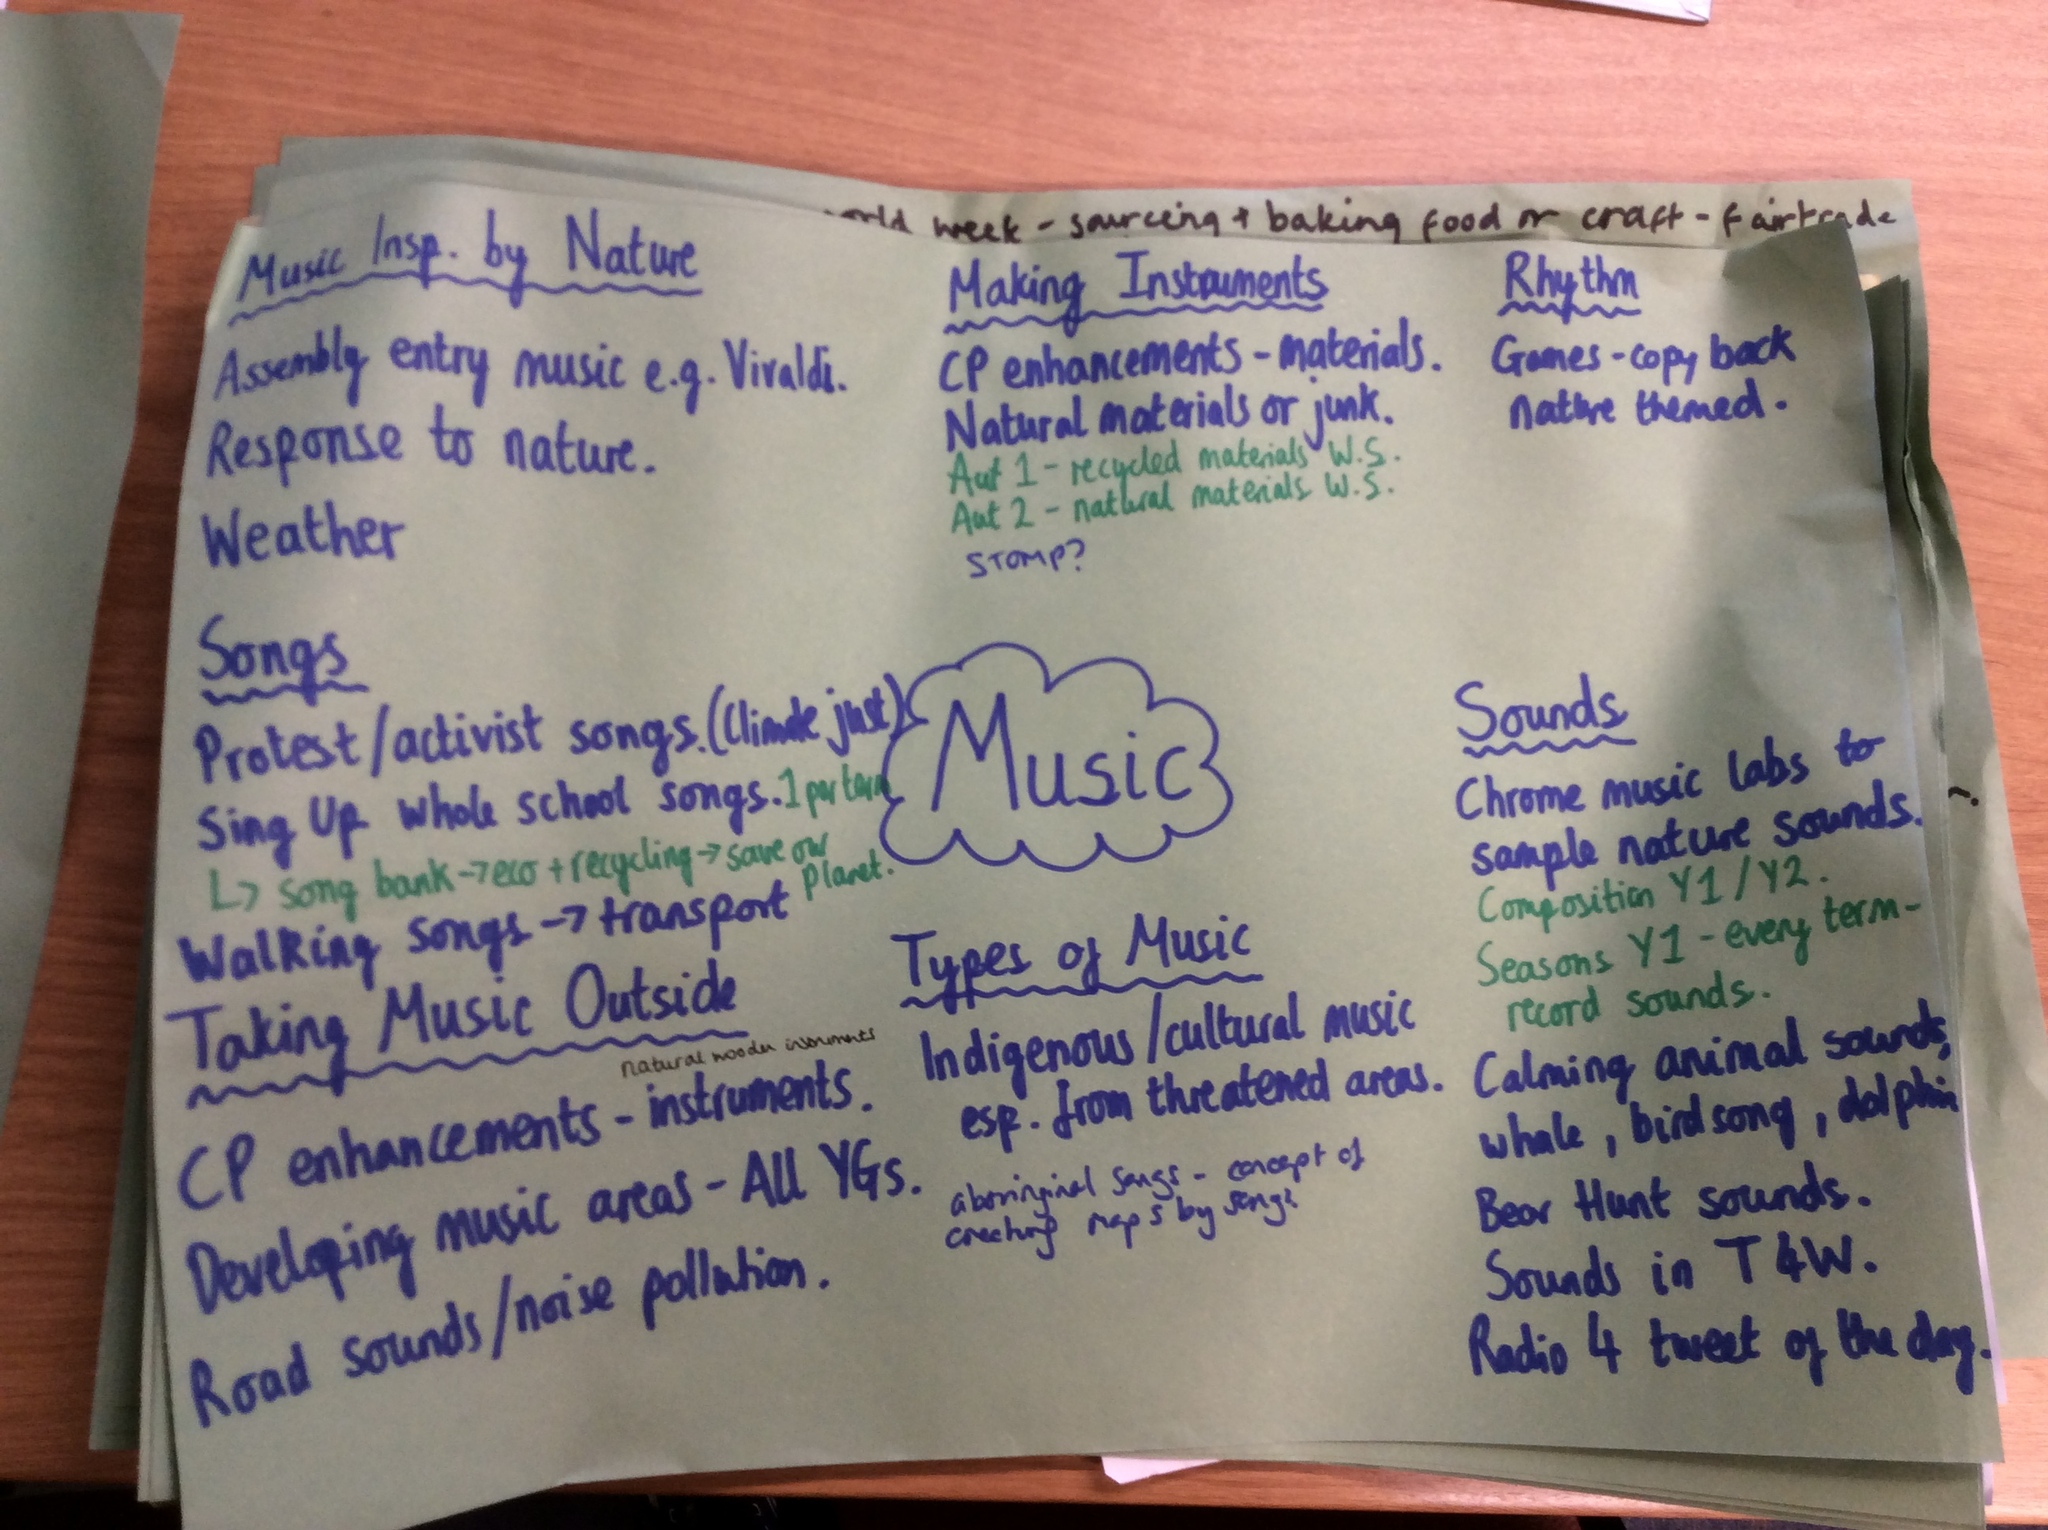 world week - sourcing + baking food or craft - fairtrade
Music Insp. by Nature
Assembly entry music e.g. Vivaldi.
Response to nature.
Weather
Making Instruments
CP enhancements - materials.
Natural materials or junk.
Aut 1 - recycled materials W.S.
Aut 2 - natural materials W.S.
STOMP?
Rhythm
Games - copy back
nature themed.
Songs
Protest/activist songs. (Climate just)
Sing Up whole school songs. 1 per term
↳ song bank → eco + recycling → save our
planet.
Walking songs → transport
Music
Taking Music Outside
natural wooden instruments
CP enhancements - instruments.
Developing music areas - All YGs.
Road sounds/noise pollution.
Types of Music
Indigenous/cultural music
esp. from threatened areas.
songs - concept of
creating maps by songs
Sounds
Chrome music labs to
sample nature sounds.
Composition Y1/Y2.
Seasons Y1 - every term -
record sounds.
Calming animal sounds,
whale, birdsong, dolphin
Bear Hunt sounds.
Sounds in T4W.
Radio 4 tweet of the day.